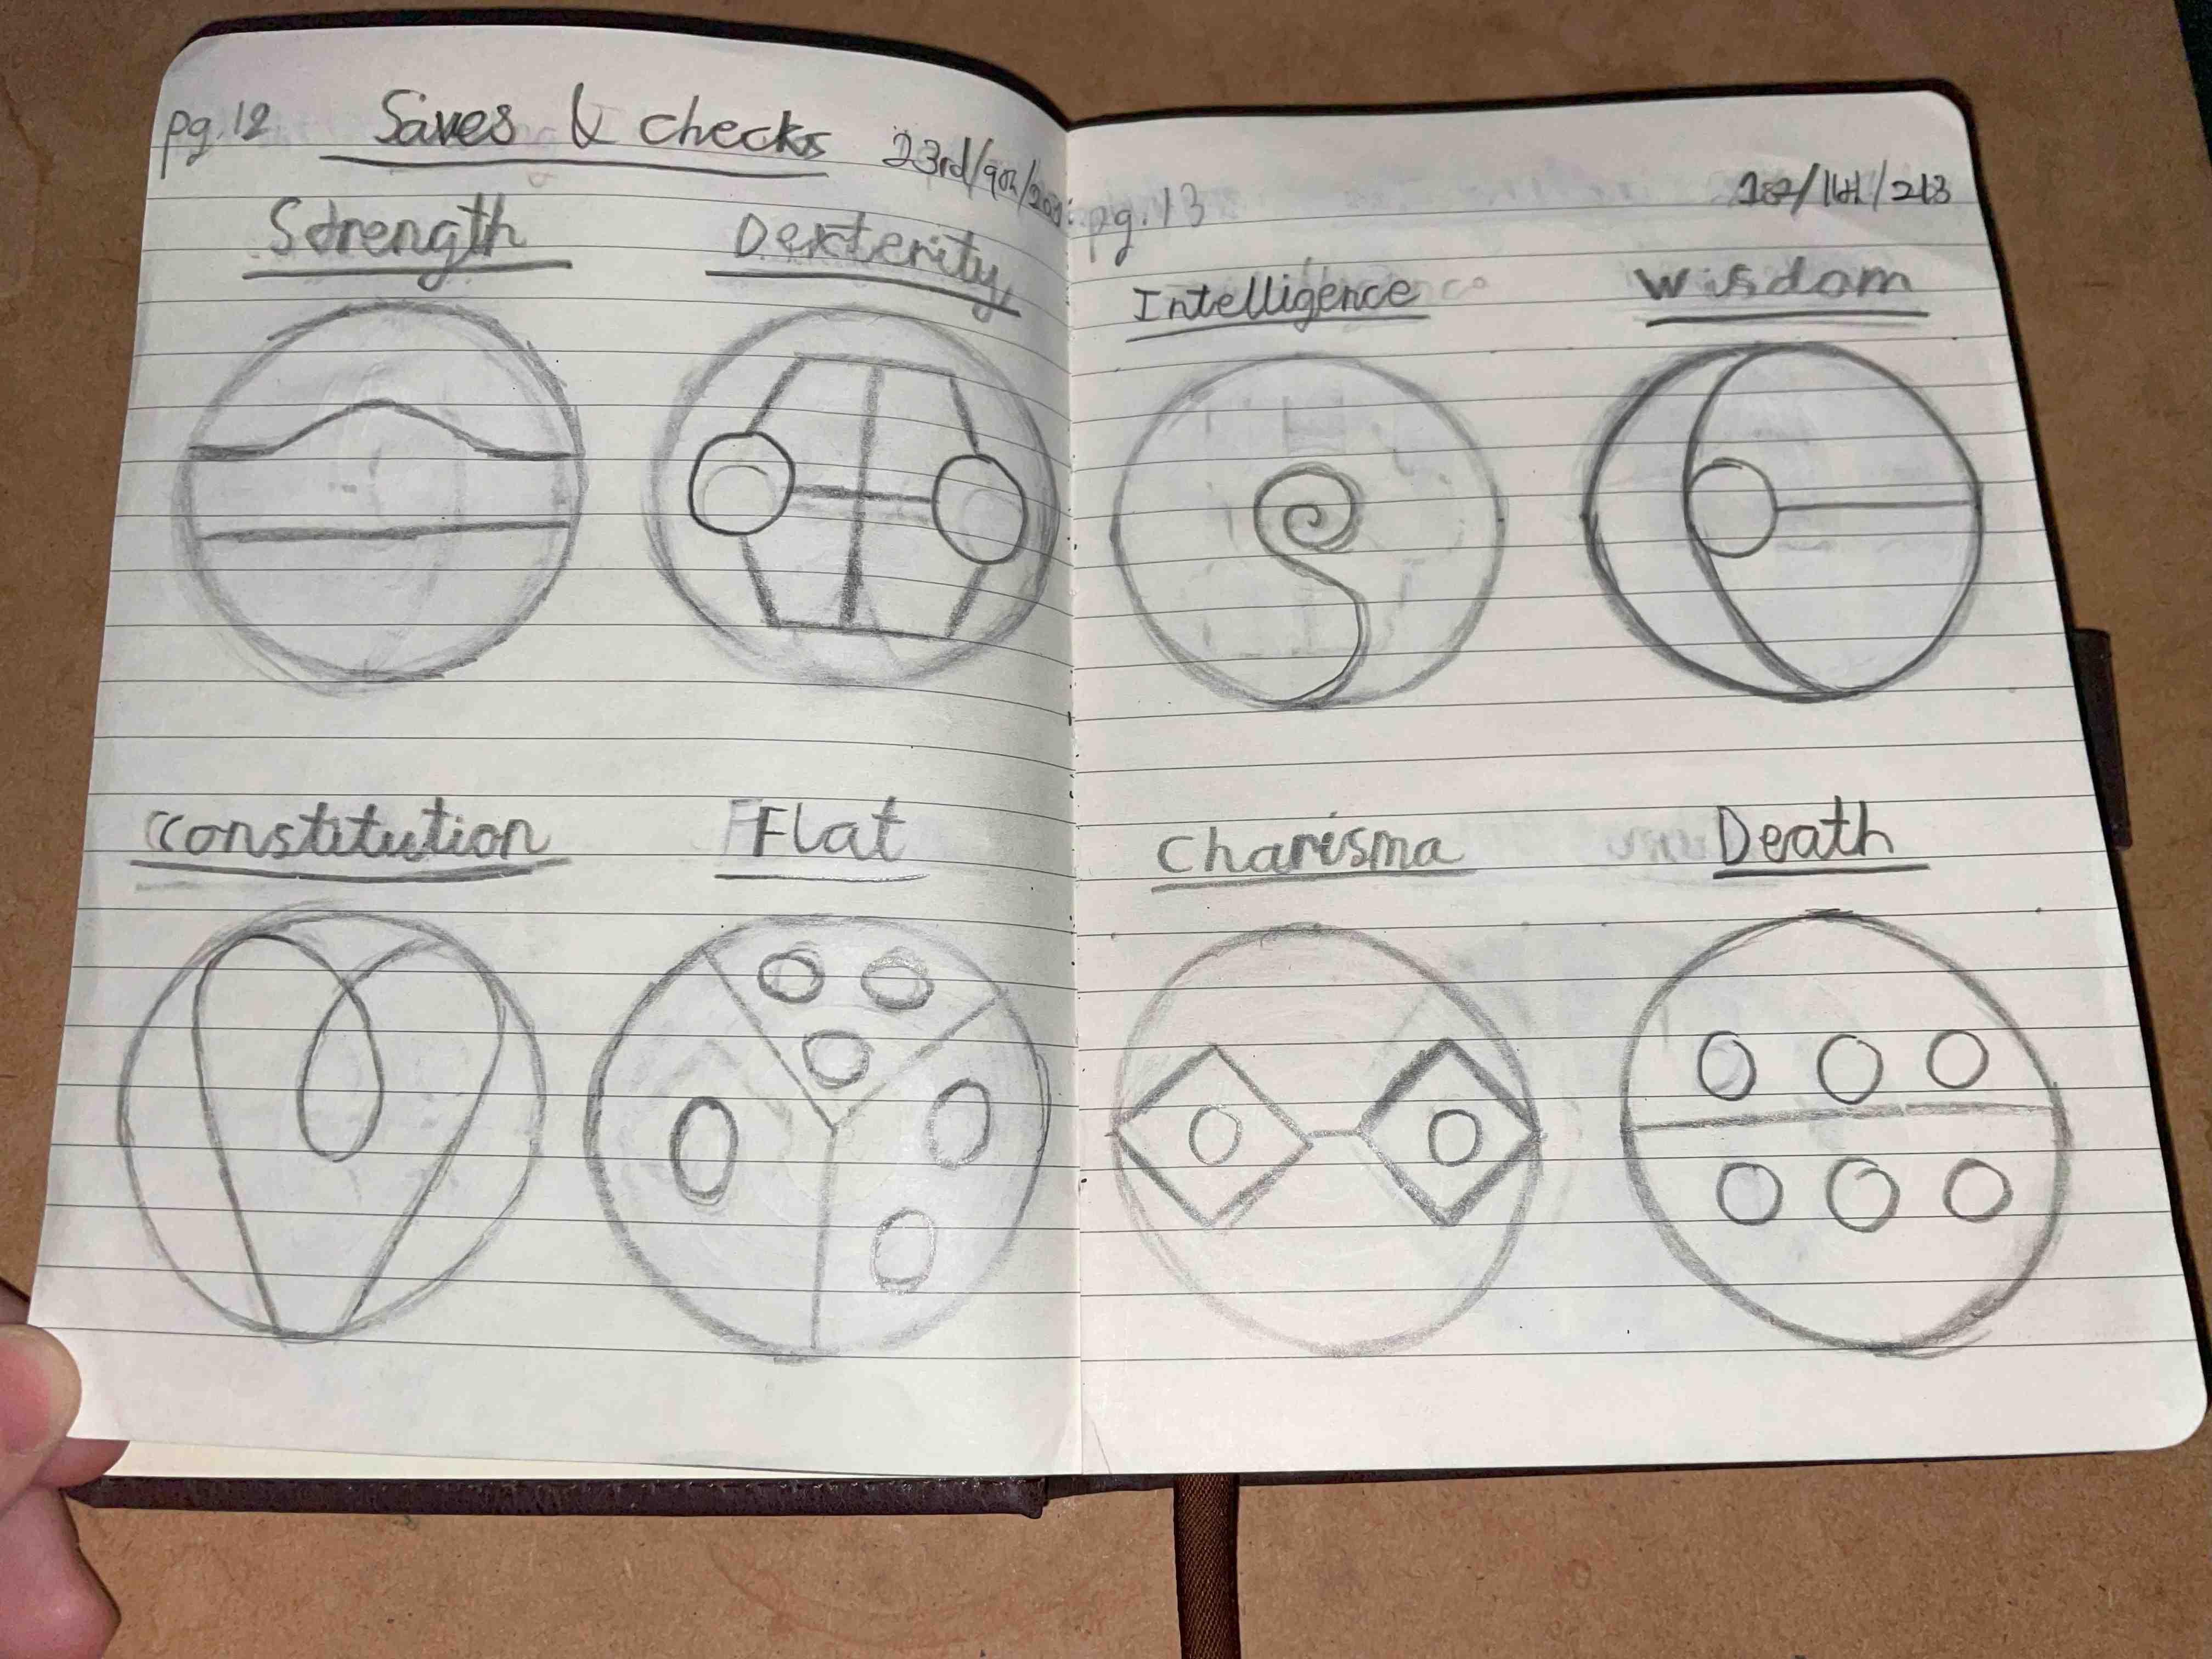 pg.12 Saves & checks
Strength Dexterity
Constitution Flat
pg.13
Intelligence Wisdom
Charisma Death